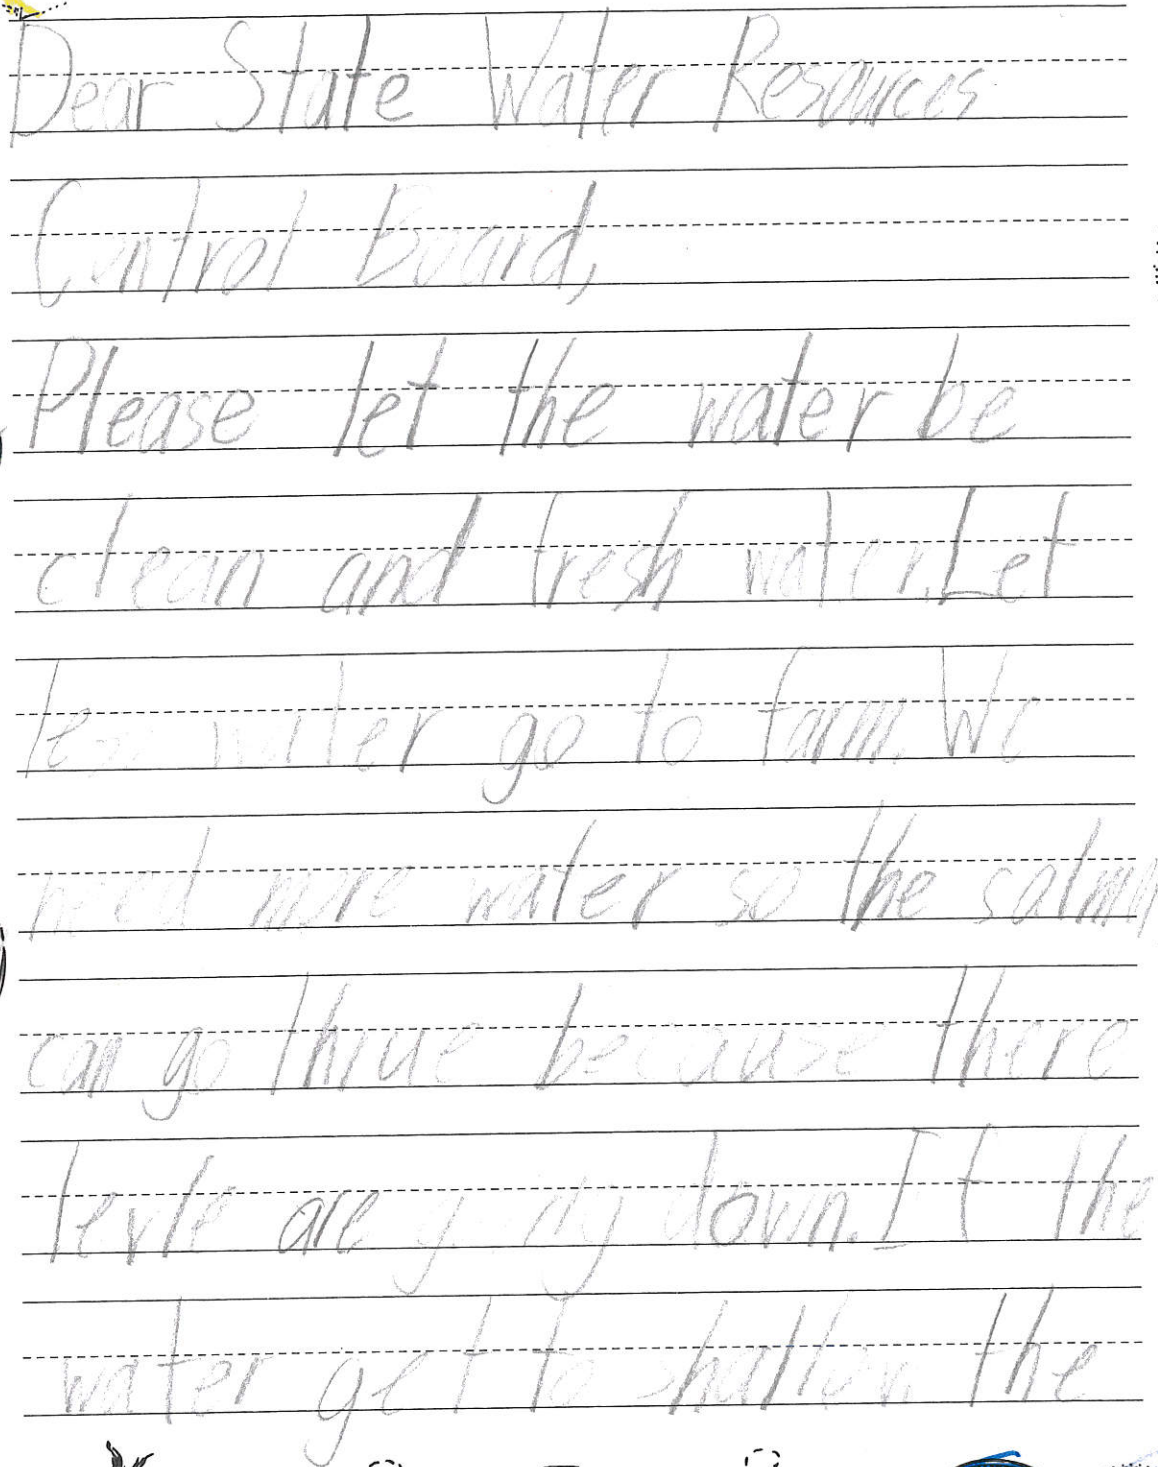 Dear State Water Resources
Control Board,
Please let the water be
clean and fresh water. Let
less water go to farm. We
need more water so the salmon
can go thrue because there
levle are going down. If the
water get to shallow the